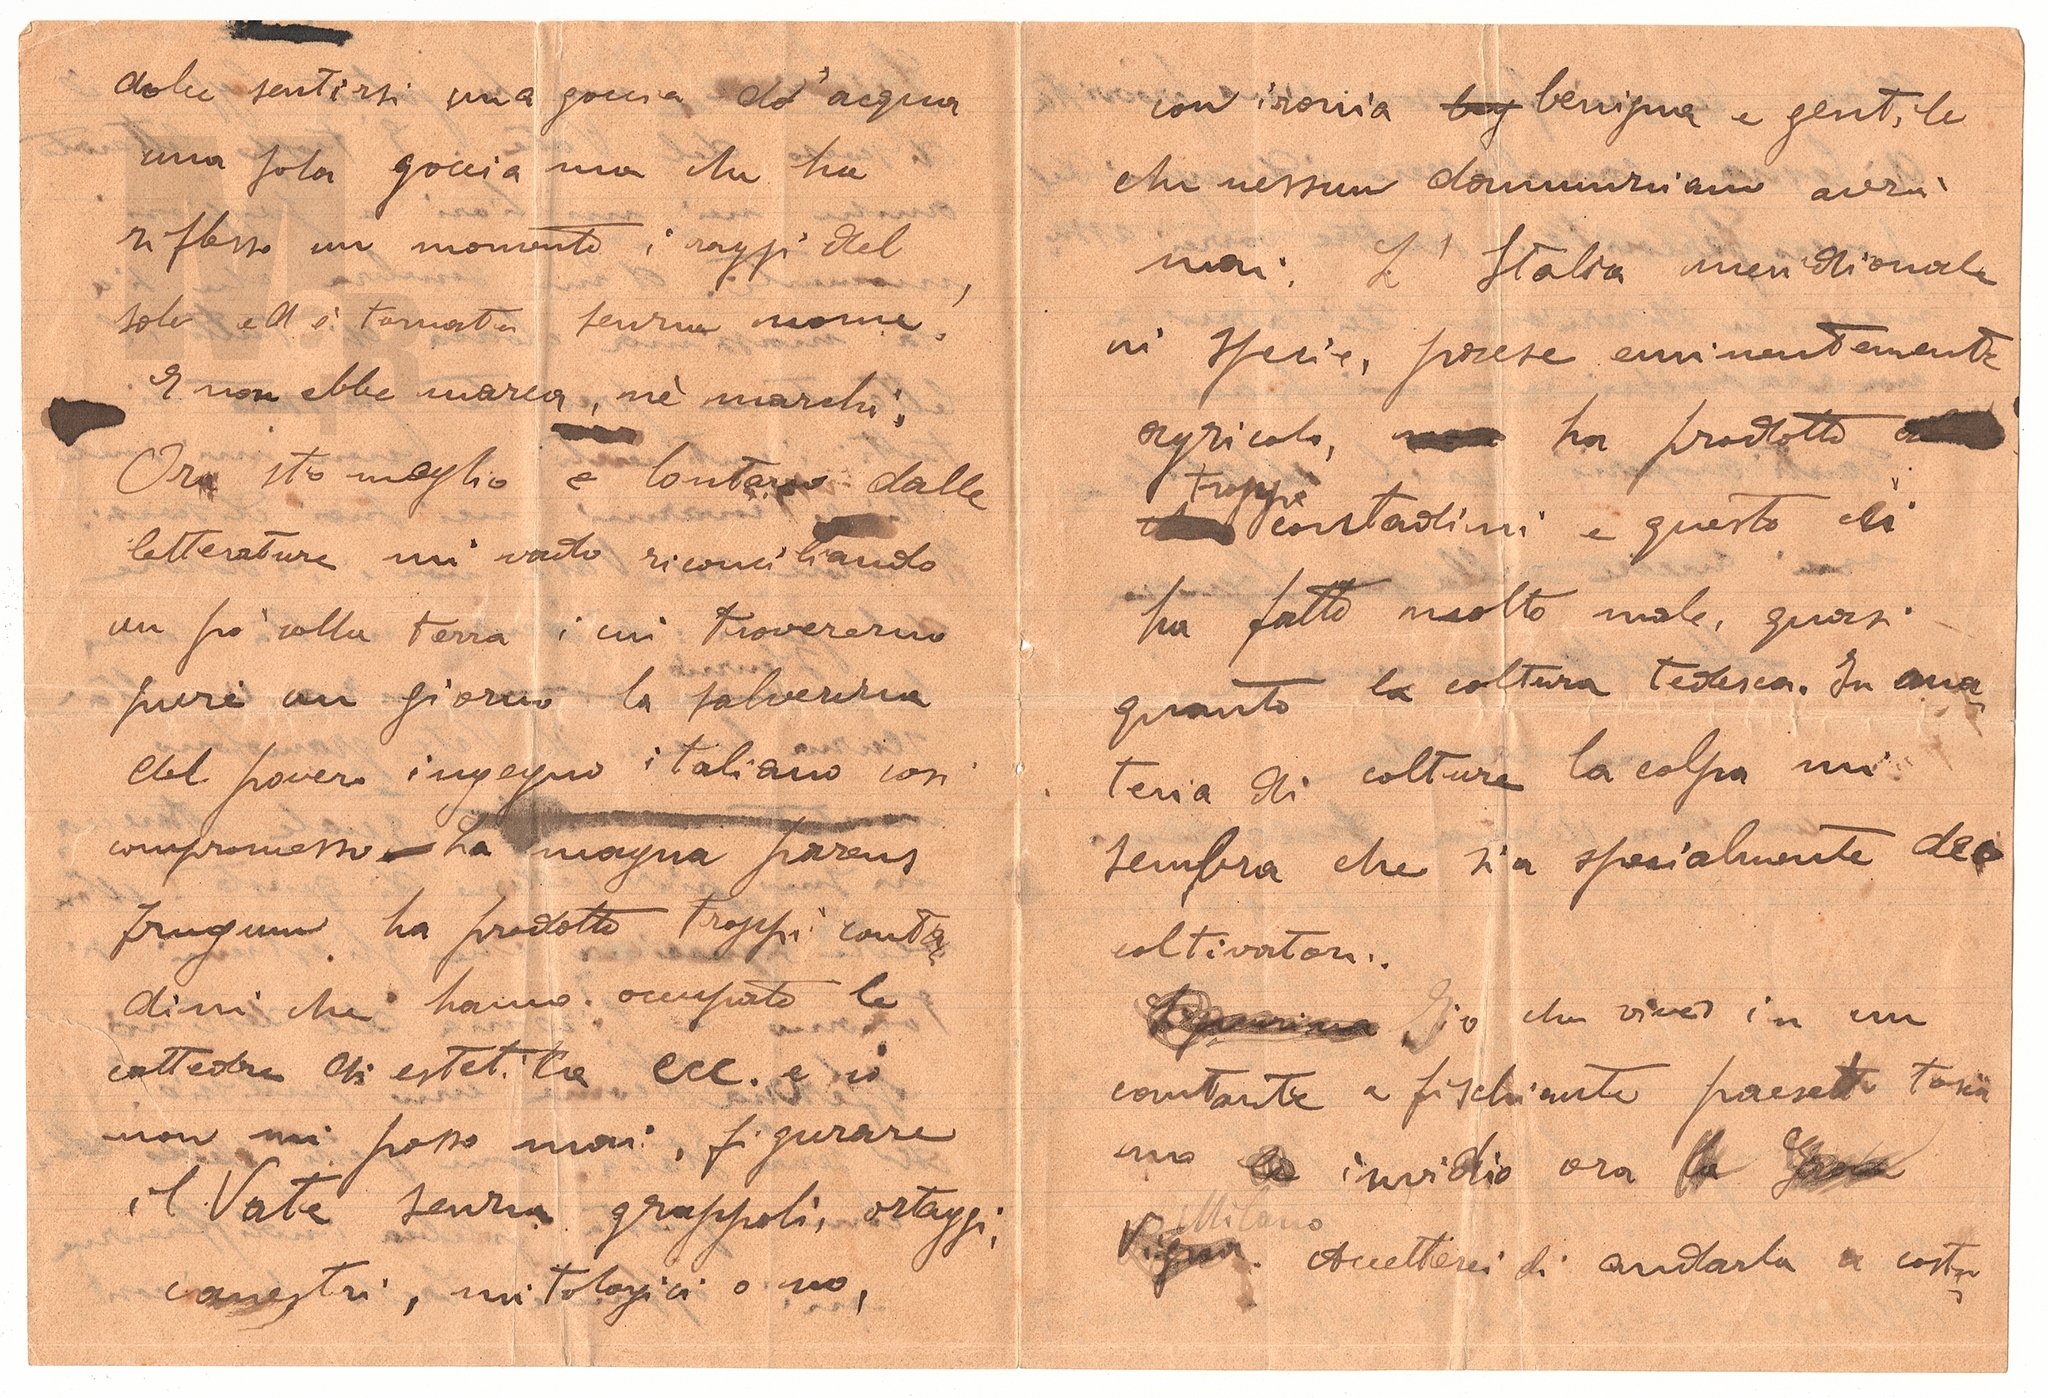 dolce sentirsi una goccia d'acqua
una sola goccia ma che ha
riflesso un momento i raggi del
sole ed è tornata senza nome!
E non ebbe marca, nè marchi.
Ora sto meglio e lontano dalle
letterature mi vado riconciliando
un pò colla terra i cui troveremo
pure un giorno la salvezza
del povero ingegno italiano così
compromesso. La magna parens
frugum ha prodotto troppi conta
dini che hanno occupato le
cattedre di estetica ecc. e io
non mi posso mai, figurare
il Vate senza grappoli, ortaggi,
canestri, mitologici o no,
con ironia benigna e gentile
che nessun avrà
mai. L'Italia meridionale
in specie, paese eminentemente
agricolo, ha prodotto
troppi
contadini e questo ci
ha fatto molto male, quasi
quanto la coltura tedesca. In ma
teria di colture la colpa mi
sembra che sia specialmente dei
coltivatori.
Io che vivo in un
cantante e fischiante paesetto tosca
no invidio ora
Milano
Accetterei di andarla a costr